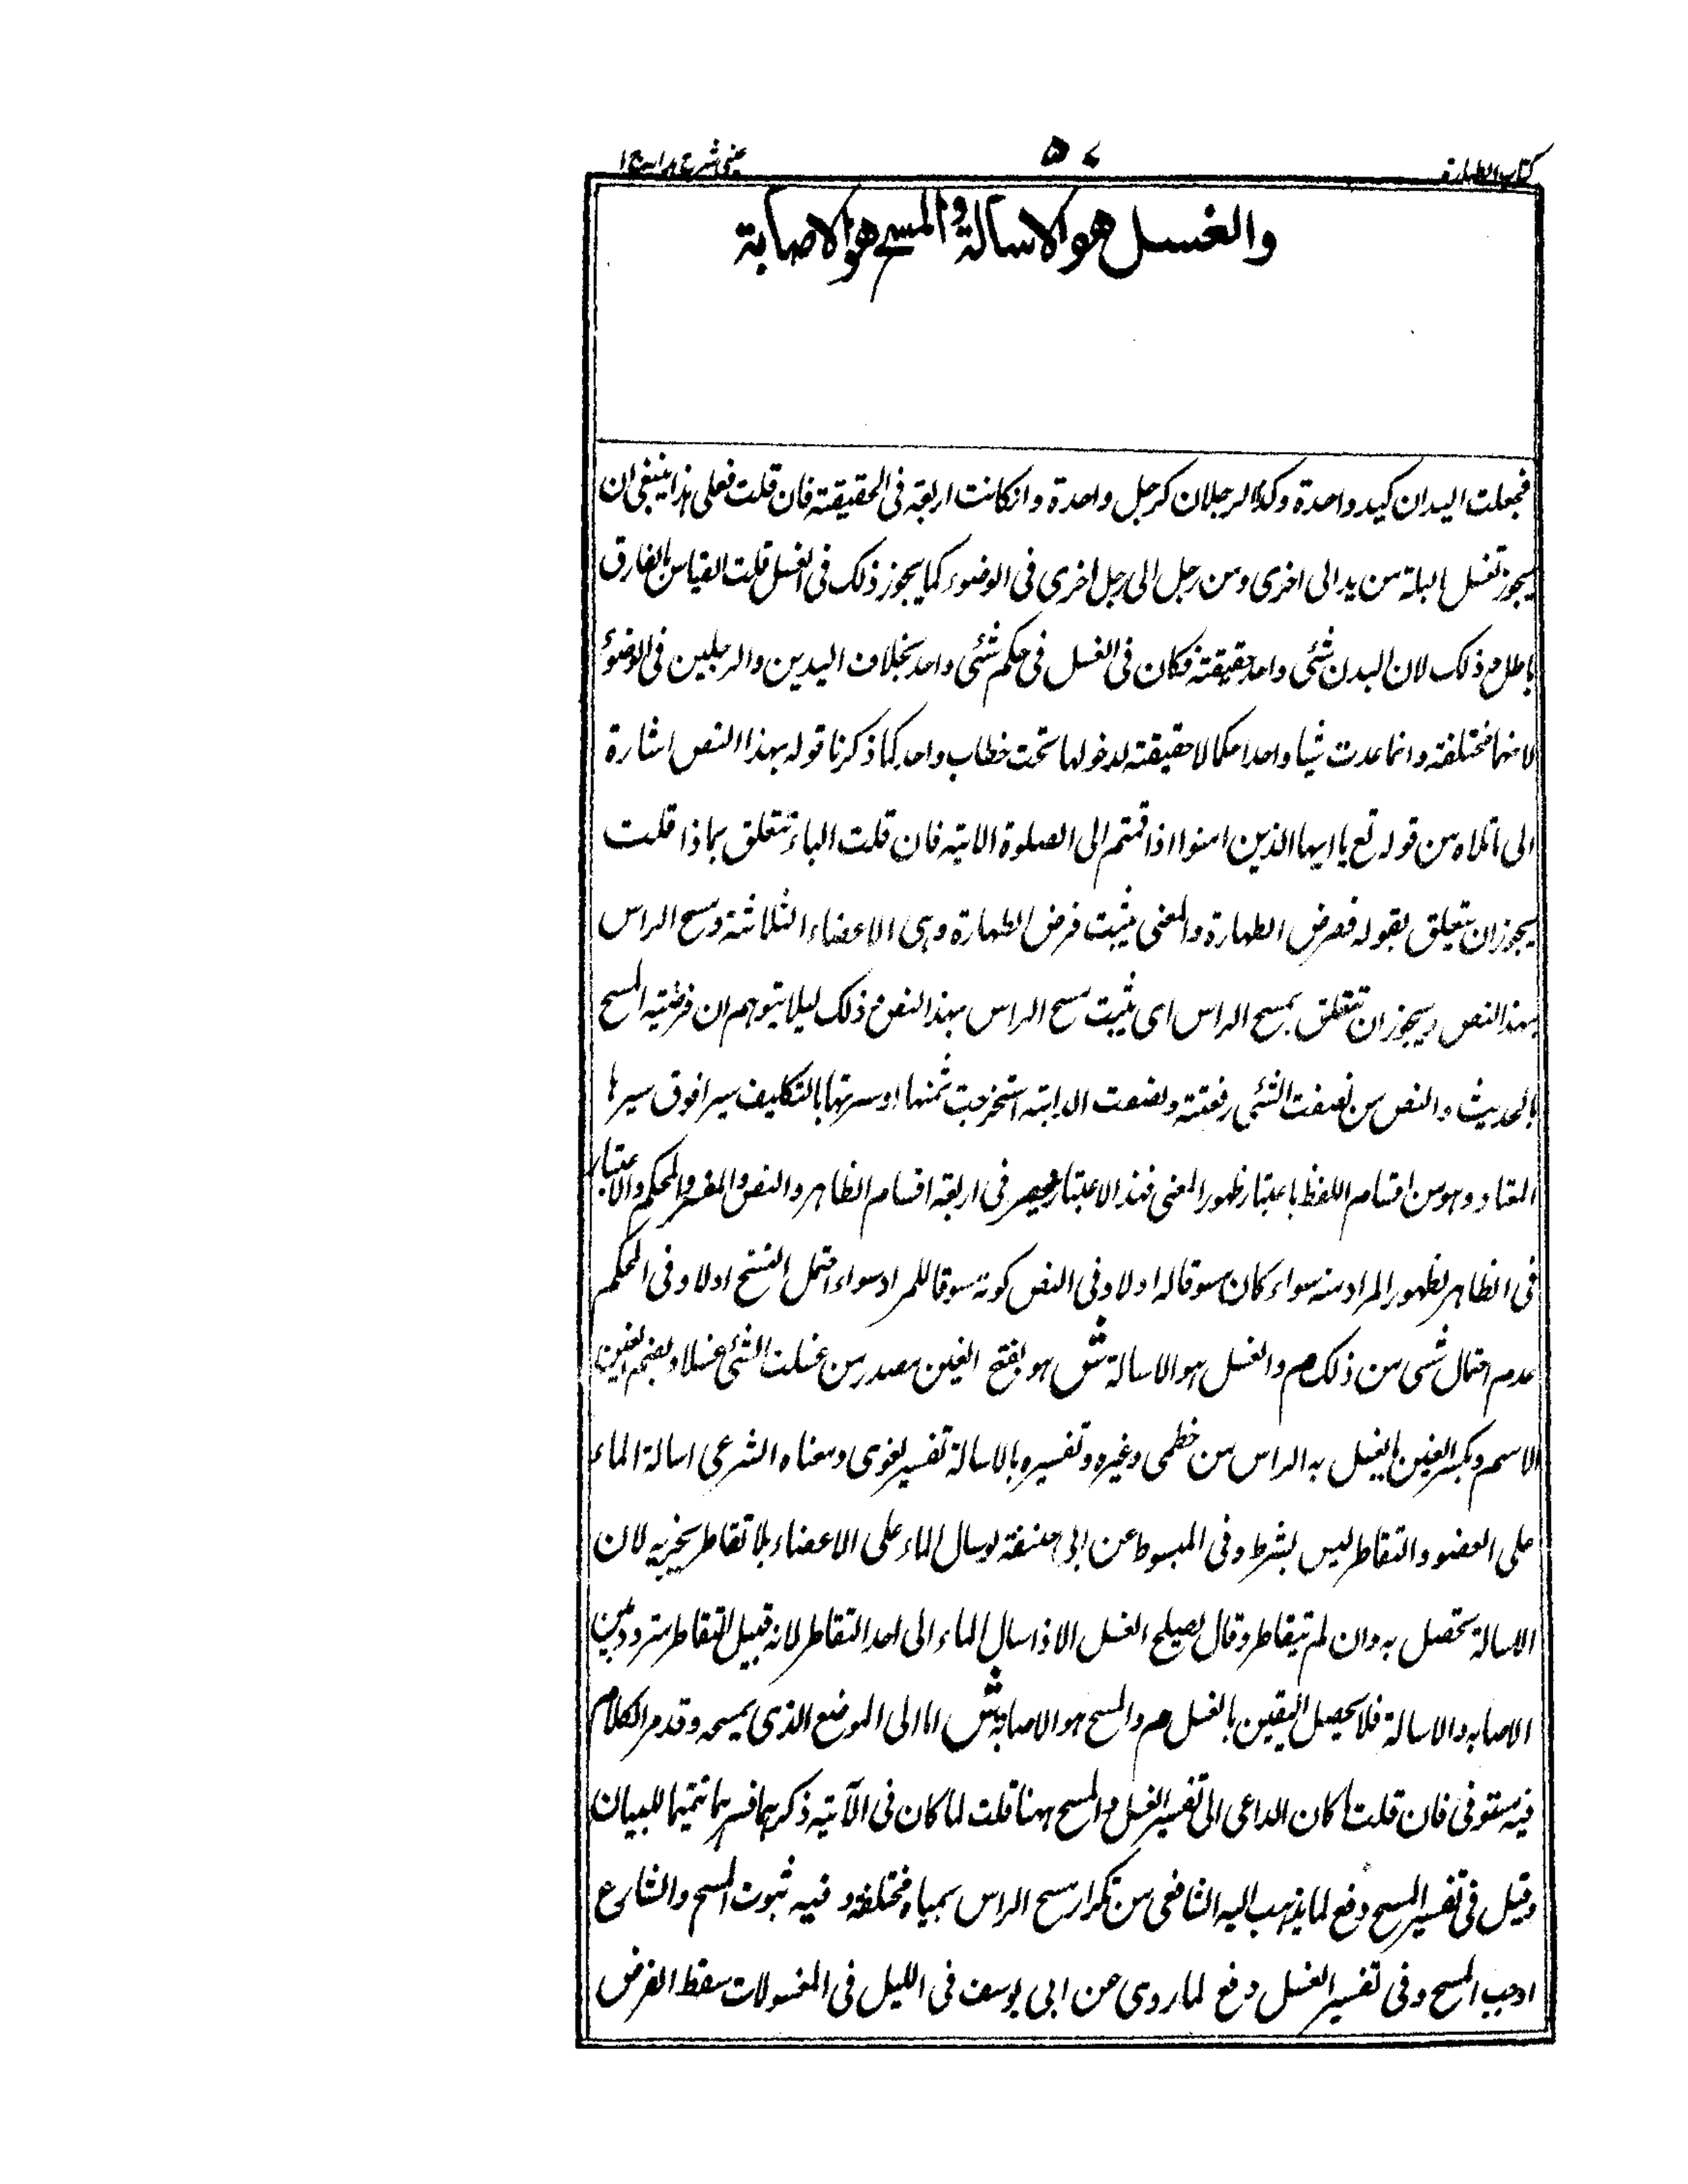 كتاب الطهارة
٥٧
عينى شرح هدايه ج ١
والغسل هو الاسالة والمسح هو الاصابة
فجعلت اليدان كيد واحدة وكذا الرجلان كرجل واحدة وانكانت اربعة فى الحقيقة فان قلت فعلى هذا ينبغى ان
يجوز تغسل بالبلة من يد الى اخرى ومن رجل الى رجل اخرى فى الوضوء كما يجوز ذلك فى الغسل قلت القياس بالفارق
باطل م ذلك لان البدن شئى واحد حقيقة فكان فى الغسل فى حكم شئى واحد بخلاف اليدين والرجلين فى الوضوء
لانها مختلفة وانما عدت شيئا واحدا حكما لا حقيقة لدخولها تحت خطاب واحد كما ذكرنا قوله بهذا النص اشارة
الى ما تلاه من قوله تع يا ايها الذين امنوا اذا قمتم الى الصلوة الاية فان قلت الباء تتعلق بماذا قلت
يجوز ان يتعلق بقوله ففرض الطهارة والمعنى يثبت فرض الطهارة وهى الاعضاء الثلاثة ومسح الراس
بهذا النص ويجوز ان تتعلق بمسح الراس اى يثبت مسح الراس بهذا النص م ذلك ليلا يتوهم ان فرضية المسح
بالحديث والنص من نصفت الشئى رفعته ونصعت الدابة استخرجت ثمنها او سرتها بالتكليف سيرا فوق سيرها
المعتاد وهو من اقسام اللفظ باعتبار ظهور المعنى فهذا الاعتبار ينحصر فى اربعة اقسام الظاهر والنص والمفسر والمحكم والاعتبار
فى الظاهر لظهور المراد منه سواء كان مسوقا له اولا وفى النص كونه مسوقا للمراد سواء احتمل النسخ اولا وفى المحكم
عدم احتمال شى من ذلك م والغسل هو الاسالة ش هو بفتح الغين مصدر من غسلت الشئى غسلا وبضم الغين
الاسم وبكسر الغين ما يغسل به الراس من خطمى وغيره وتفسيره بالاسالة تفسير لغوى ومعناه الشرعى اسالة الماء
على العضو والتقاطر ليس بشرط وفى المبسوط عن ابى حنيفة لو سال الماء على الاعضاء بلا تقاطر يجزيه لان
الاسالة تحصل به وان لم يتقاطر وقال يصلح الغسل الا اذا سال الماء الى احد التقاطر لانه قبيل التقاطر متردد بين
الاصابه والاسالة فلا يحصل اليقين بالغسل م والمسح هو الاصابة ش الماالى الموضع الذى يمسحه وقد مر الكلام
فيه مستوفى فان قلت ما كان الداعى الى تفسير الغسل والمسح ههنا قلت لما كان فى الآية ذكرهما فسرهما تتميما للبيان
وقيل فى تفسير المسح دفع لما يذهب اليه الشافعى من تكرار مسح الراس بمياه مختلفة وفيه ثبوت المسح والشارع
اوجب المسح وفى تفسير الغسل دفع لما روى عن ابى يوسف فى الليل فى المغسولات سقط الفرض